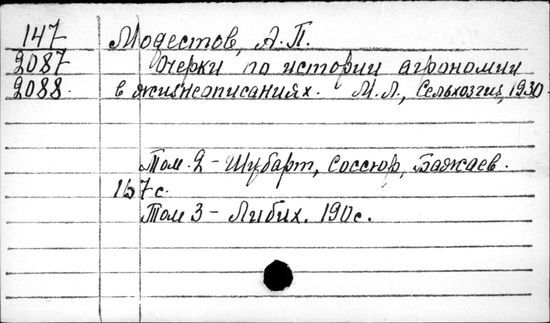 147 Модестов, А.П.
2087 Очерки по истории агрономии
2088. в жизнеописаниях. М.Л., Сельхозгиз, 1930.
Том. 2 - Шубарт, Соссюр, Бажаев.
167 с.
Том 3 - Либих. 190 с.